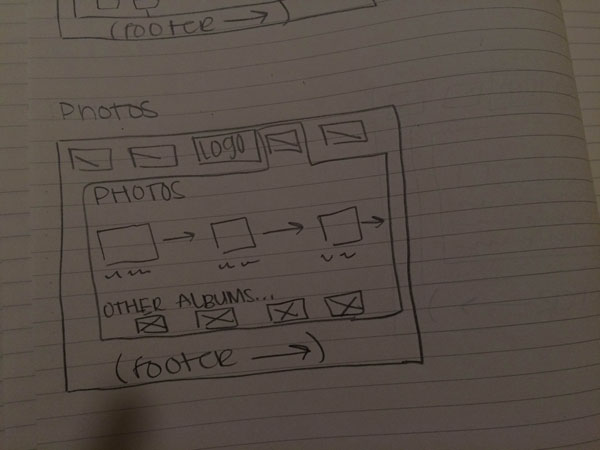 (FOOTER →)
PHOTOS
LOGO
PHOTOS
OTHER ALBUMS...
(FOOTER →)